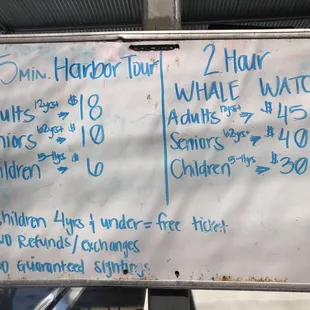 5 MIN. Harbor Tour
dults 12yrs+ → $18
niors 62yrs+ → $10
ildren 5-11yrs → 6
2 Hour
WHALE WATC
Adults 12yrs+ → $45
Seniors 62yrs+ → $40
Children 5-11yrs → $30
hildren 4yrs & under = free ticket
o Refunds/exchanges
o Guaranteed sightings